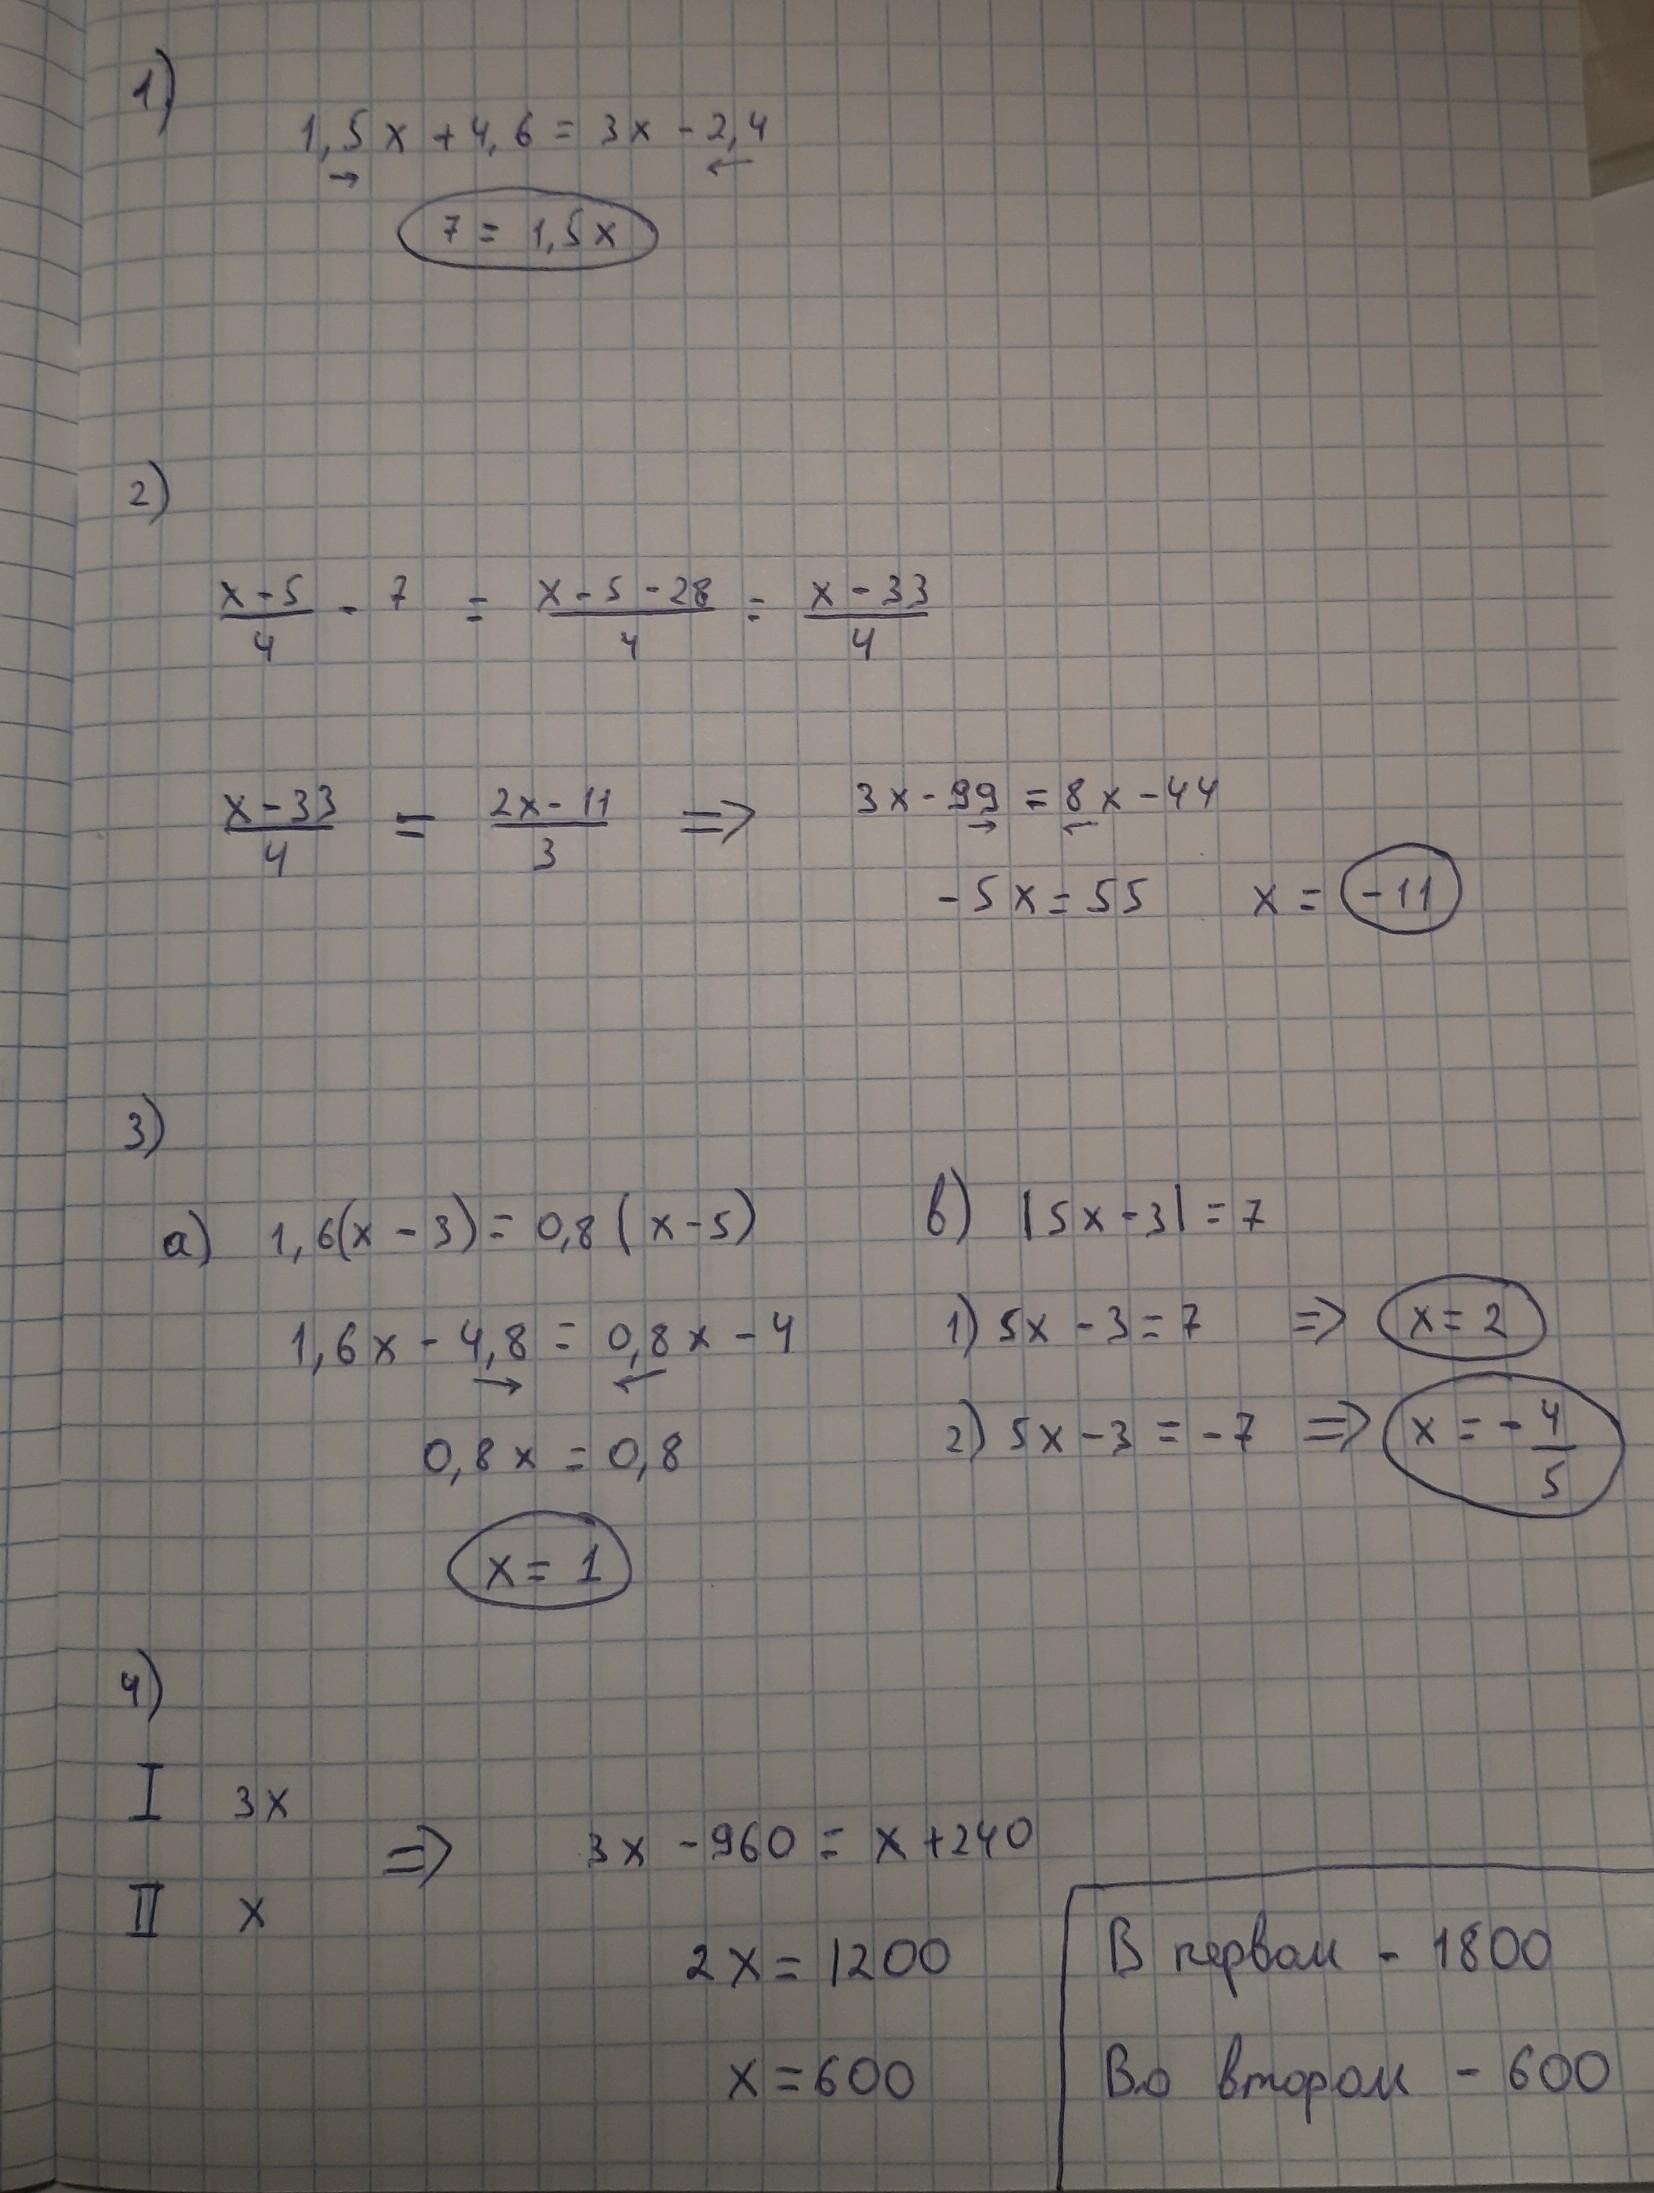 1)
1,5x + 4,6 = 3x - 2,4
→ ←
7 = 1,5x
2)
(x-5)/4 - 7 = (x-5-28)/4 = (x-33)/4
(x-33)/4 = (2x-11)/3 => 3x - 99 = 8x - 44
→ ←
-5x = 55 x = -11
3)
а) 1,6(x-3) = 0,8(x-5)
1,6x - 4,8 = 0,8x - 4
→ ←
0,8x = 0,8
x = 1
в) |5x-3| = 7
1) 5x - 3 = 7 => x = 2
2) 5x - 3 = -7 => x = -4/5
4)
I 3x
II x
=> 3x - 960 = x + 240
2x = 1200
x = 600
В первом - 1800
Во втором - 600